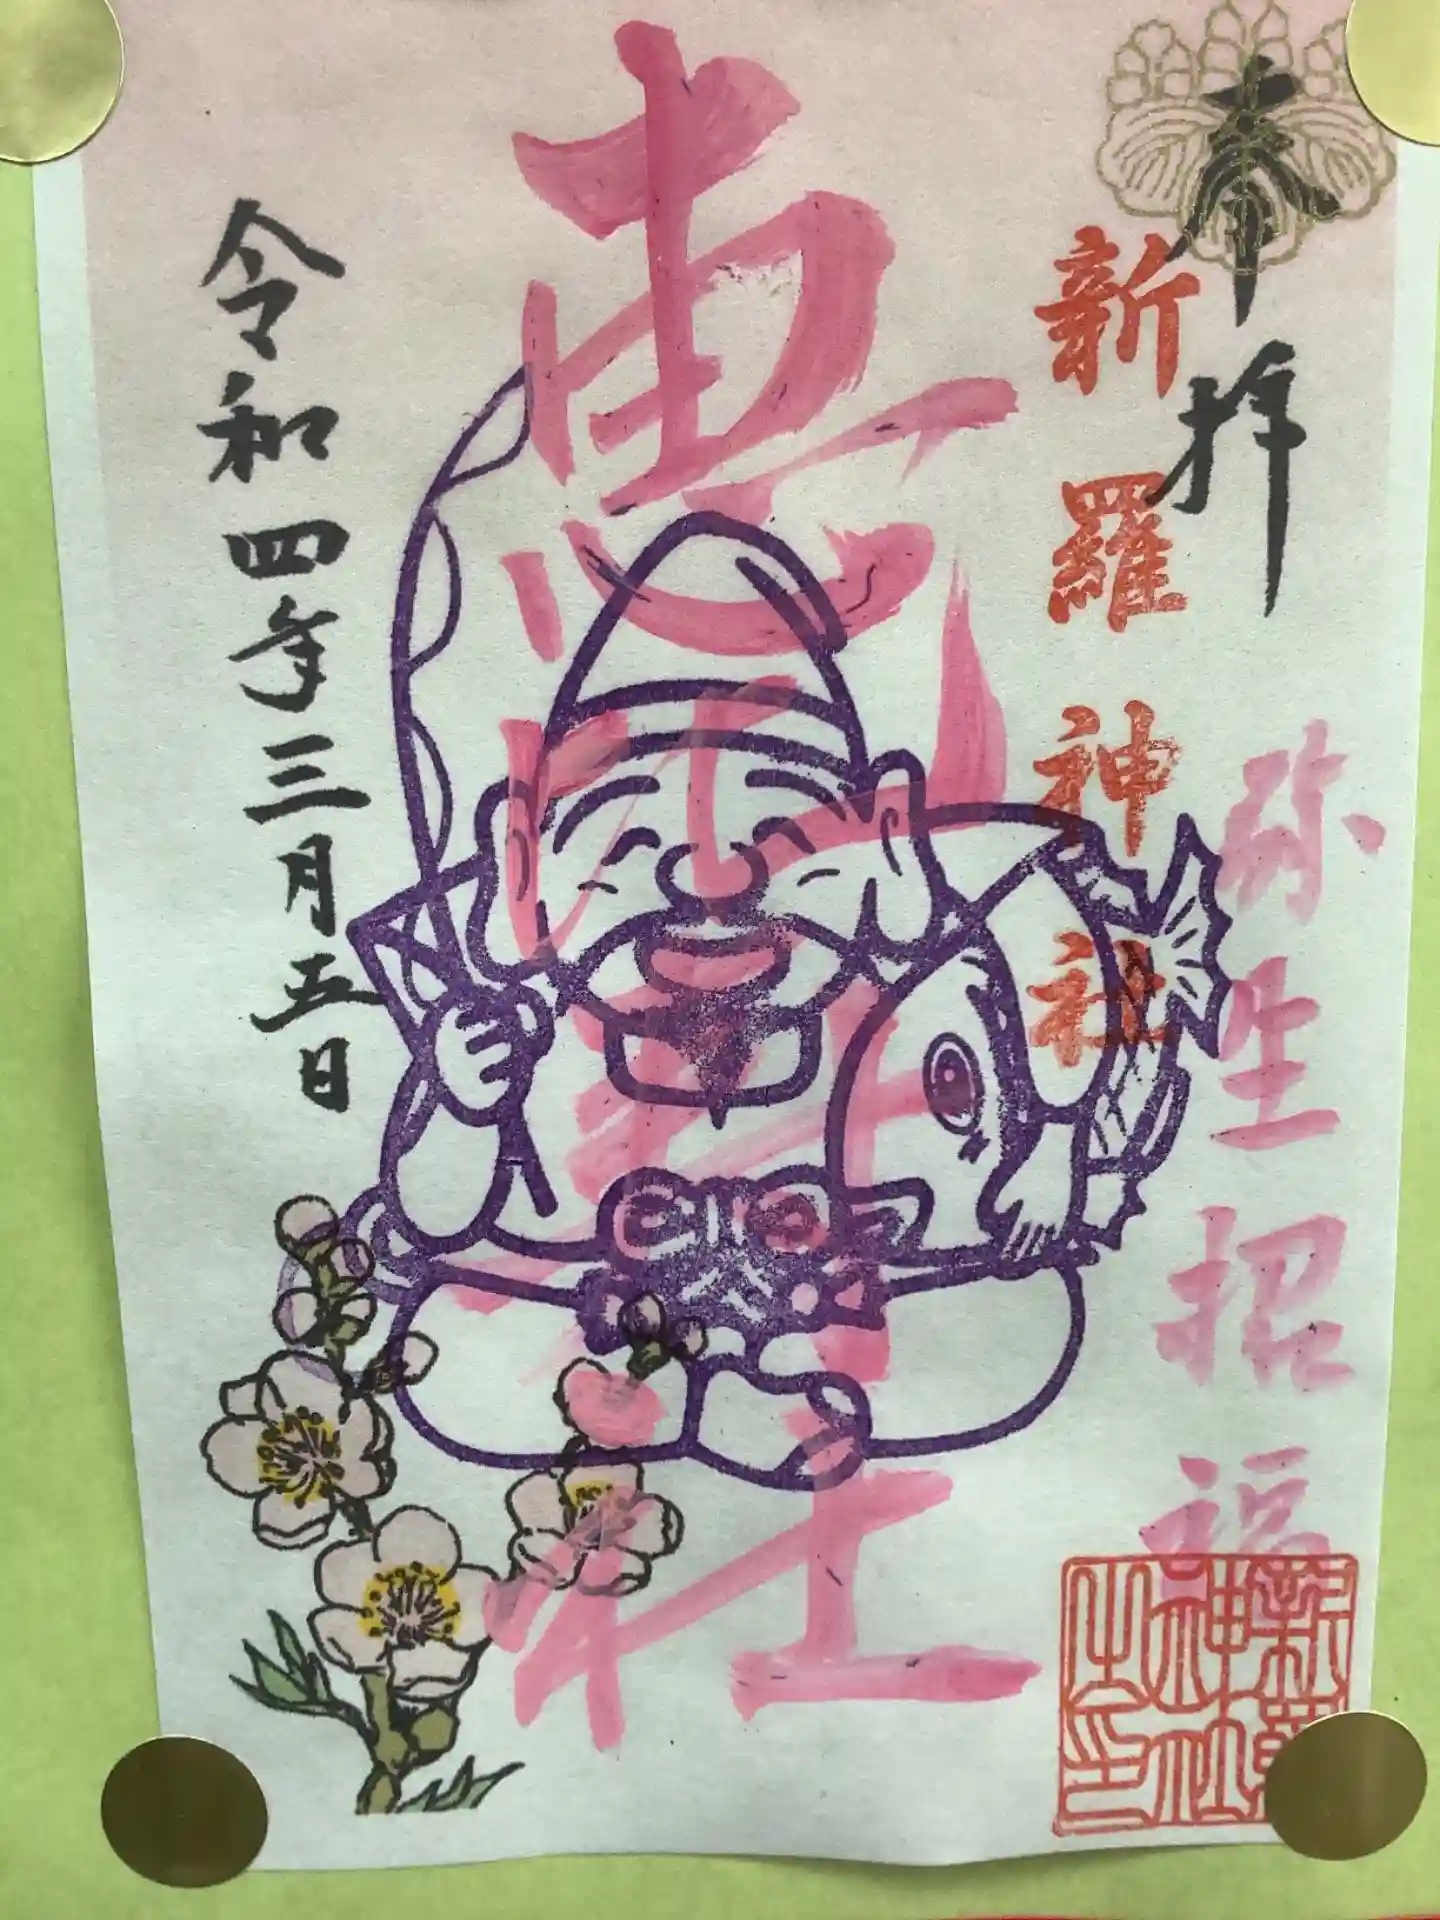 奉拝
弥生招福
新羅神社
恵比 社
令和四年三月五日
新羅
神社
之印